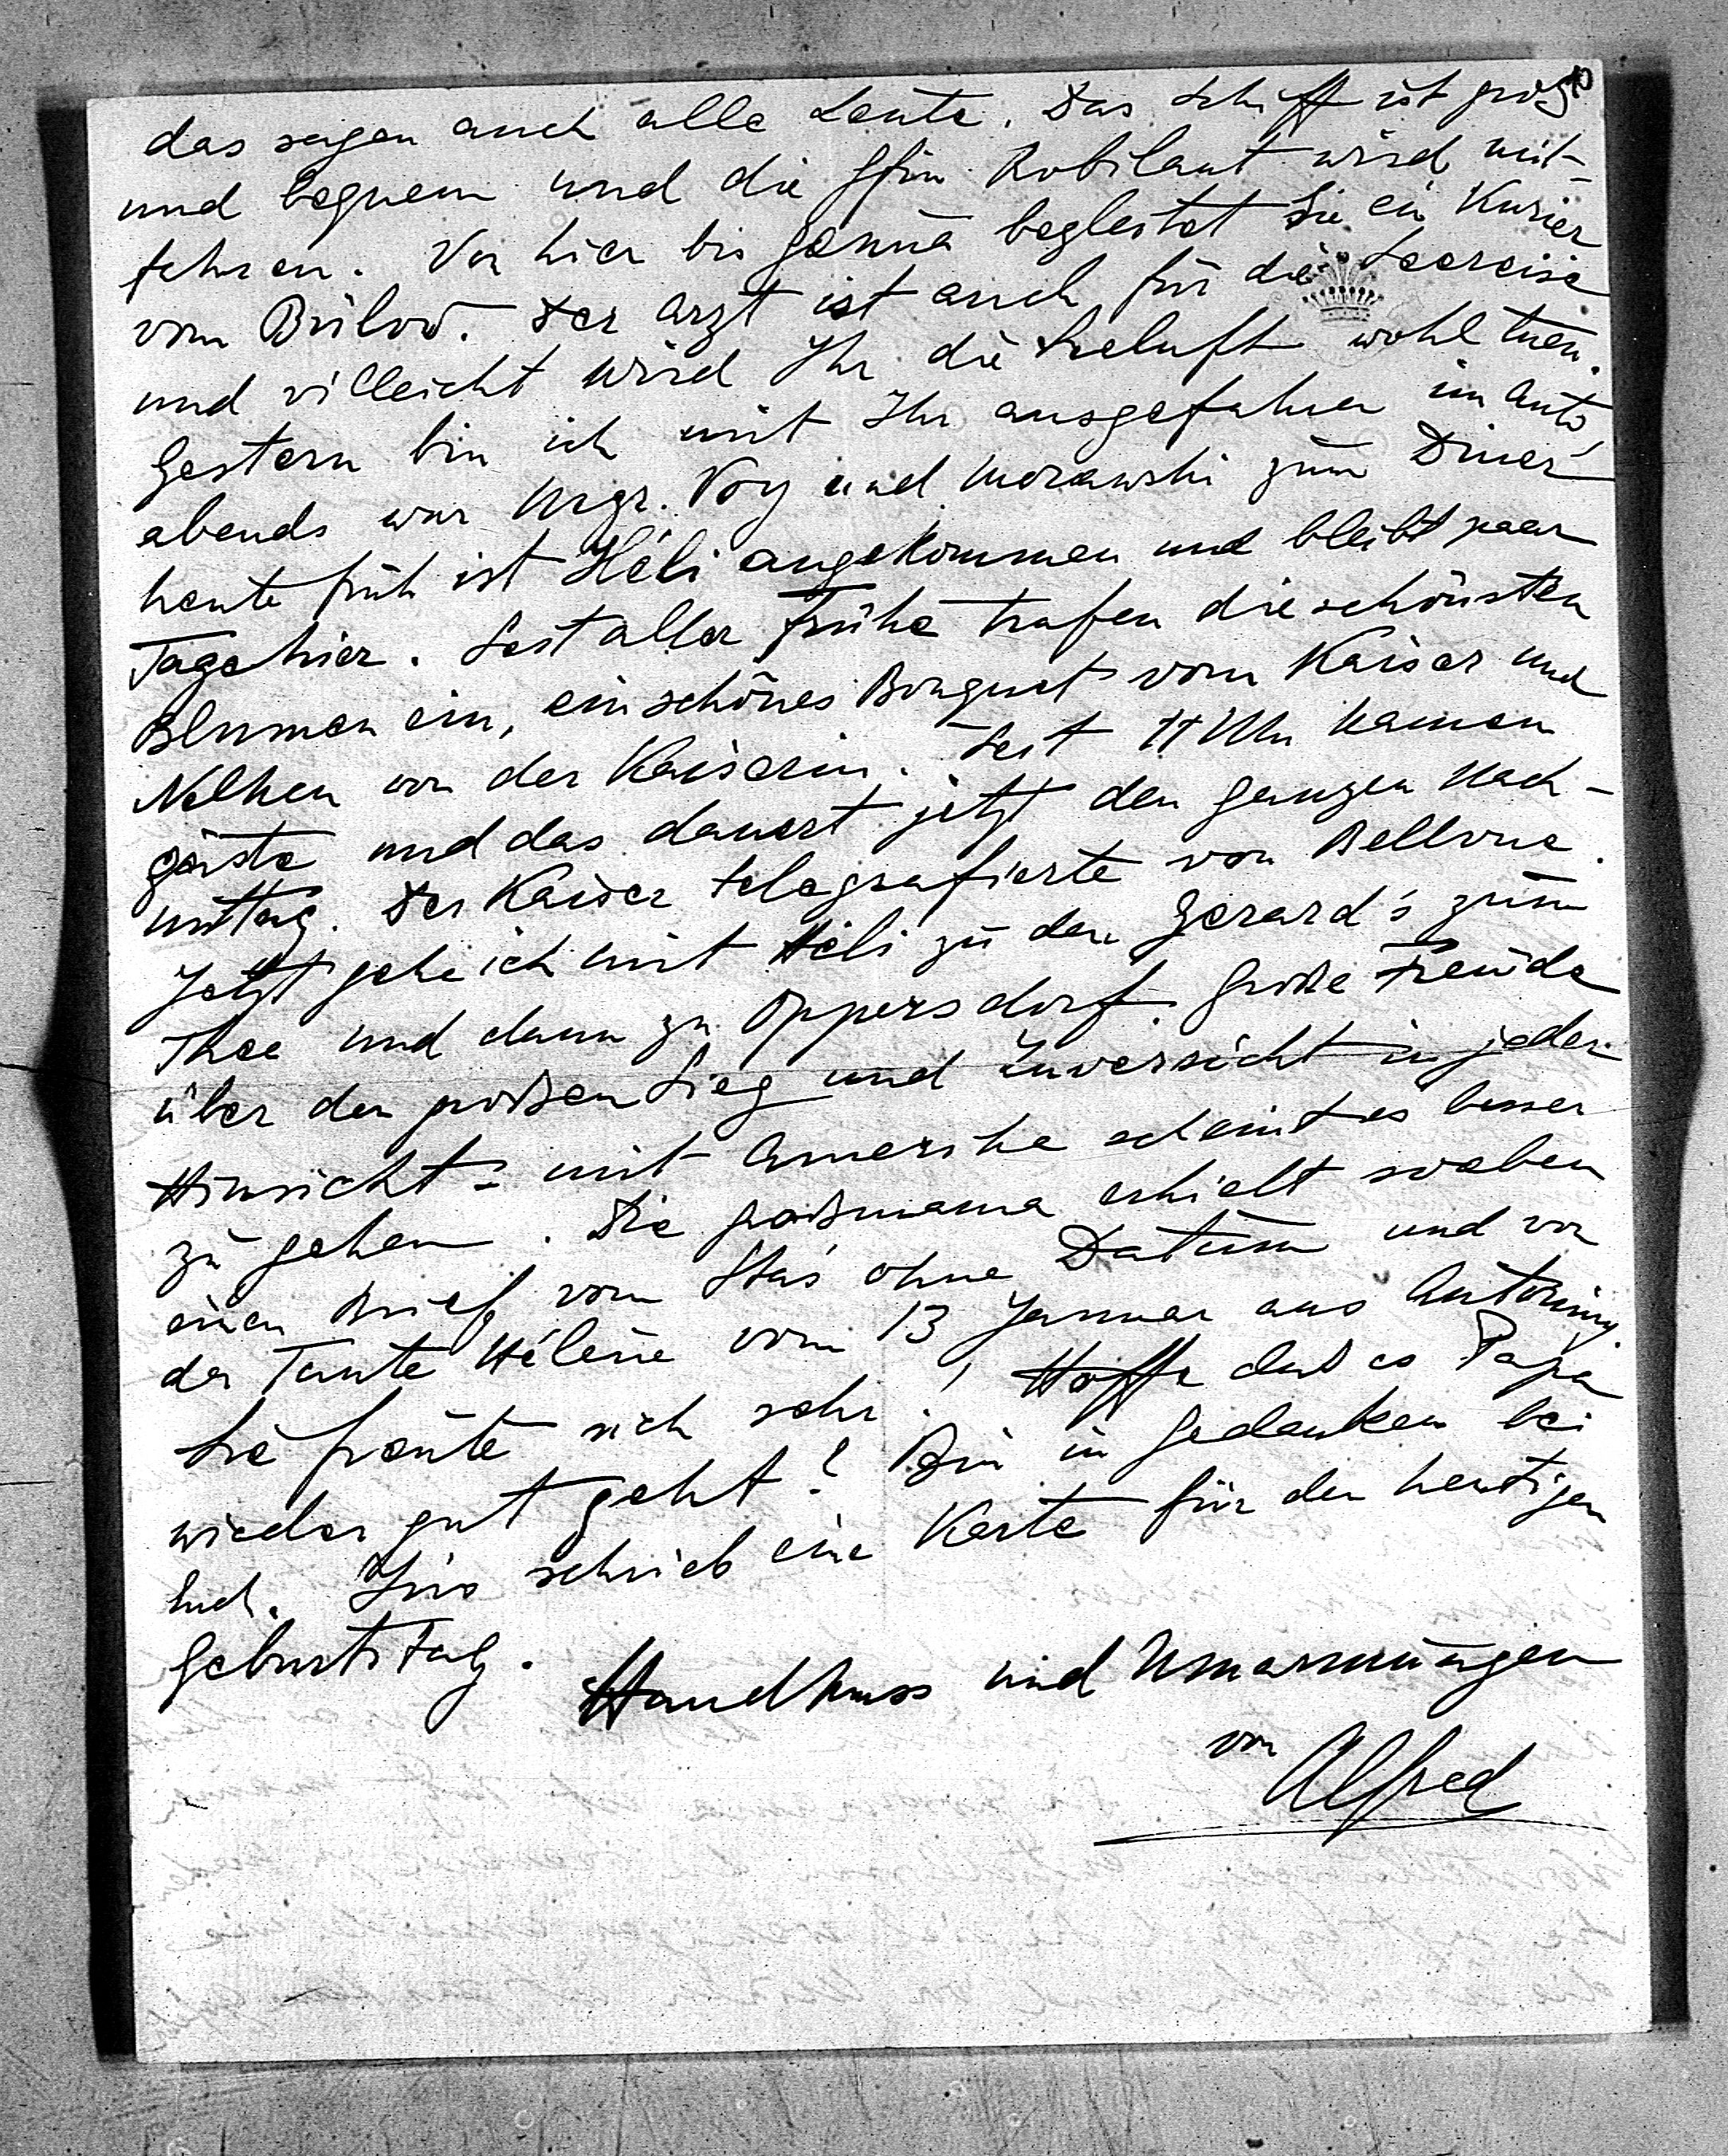 das sagen auch alle Leute. Das Schiff ist groß
und bequem und die Gfin Robilant wird mit-
fahren. Von hier bis Genua begleitet Sie ein Kurier
vom Bülow. Der Arzt ist auch für die Seereise
und villeicht wird Ihr die Seeluft wohl tuen.
Gestern bin ich mit Ihr ausgefahren im Auto,
abends war Msgr. Voy und Morawski zum Diner
heute früh ist Héli angekommen und bleibt paar
Tage hier. Seit aller Frühe trafen die schönsten
Blumen ein, ein schönes Bouquet vom Kaiser und
Nelken von der Kaiserin. Seit 11 Uhr kamen
Gäste und das dauert jetzt den ganzen Nach-
mittag. Der Kaiser telegrafierte von Bellvue.
Jetzt gehe ich mit Héli zu den Gerard's zum
Thee und dann zu Oppersdorf. Große Freude
über den großen Sieg und Zuversicht in jeder
Hinsicht = mit Amerika scheint es besser
zu gehen. Die Großmama erhielt soeben
einen Brief vom Stas ohne Datum und von
der Tante Hélène vom 13 Januar aus Antoniny.
Sie freute sich sehr! Hoffe daß es Papa
wieder gut geht? Bin in Gedanken bei
Euch. schrieb eine Karte für den heutigen
Geburtstag.
Handkuss und Umarmungen
von Alfred